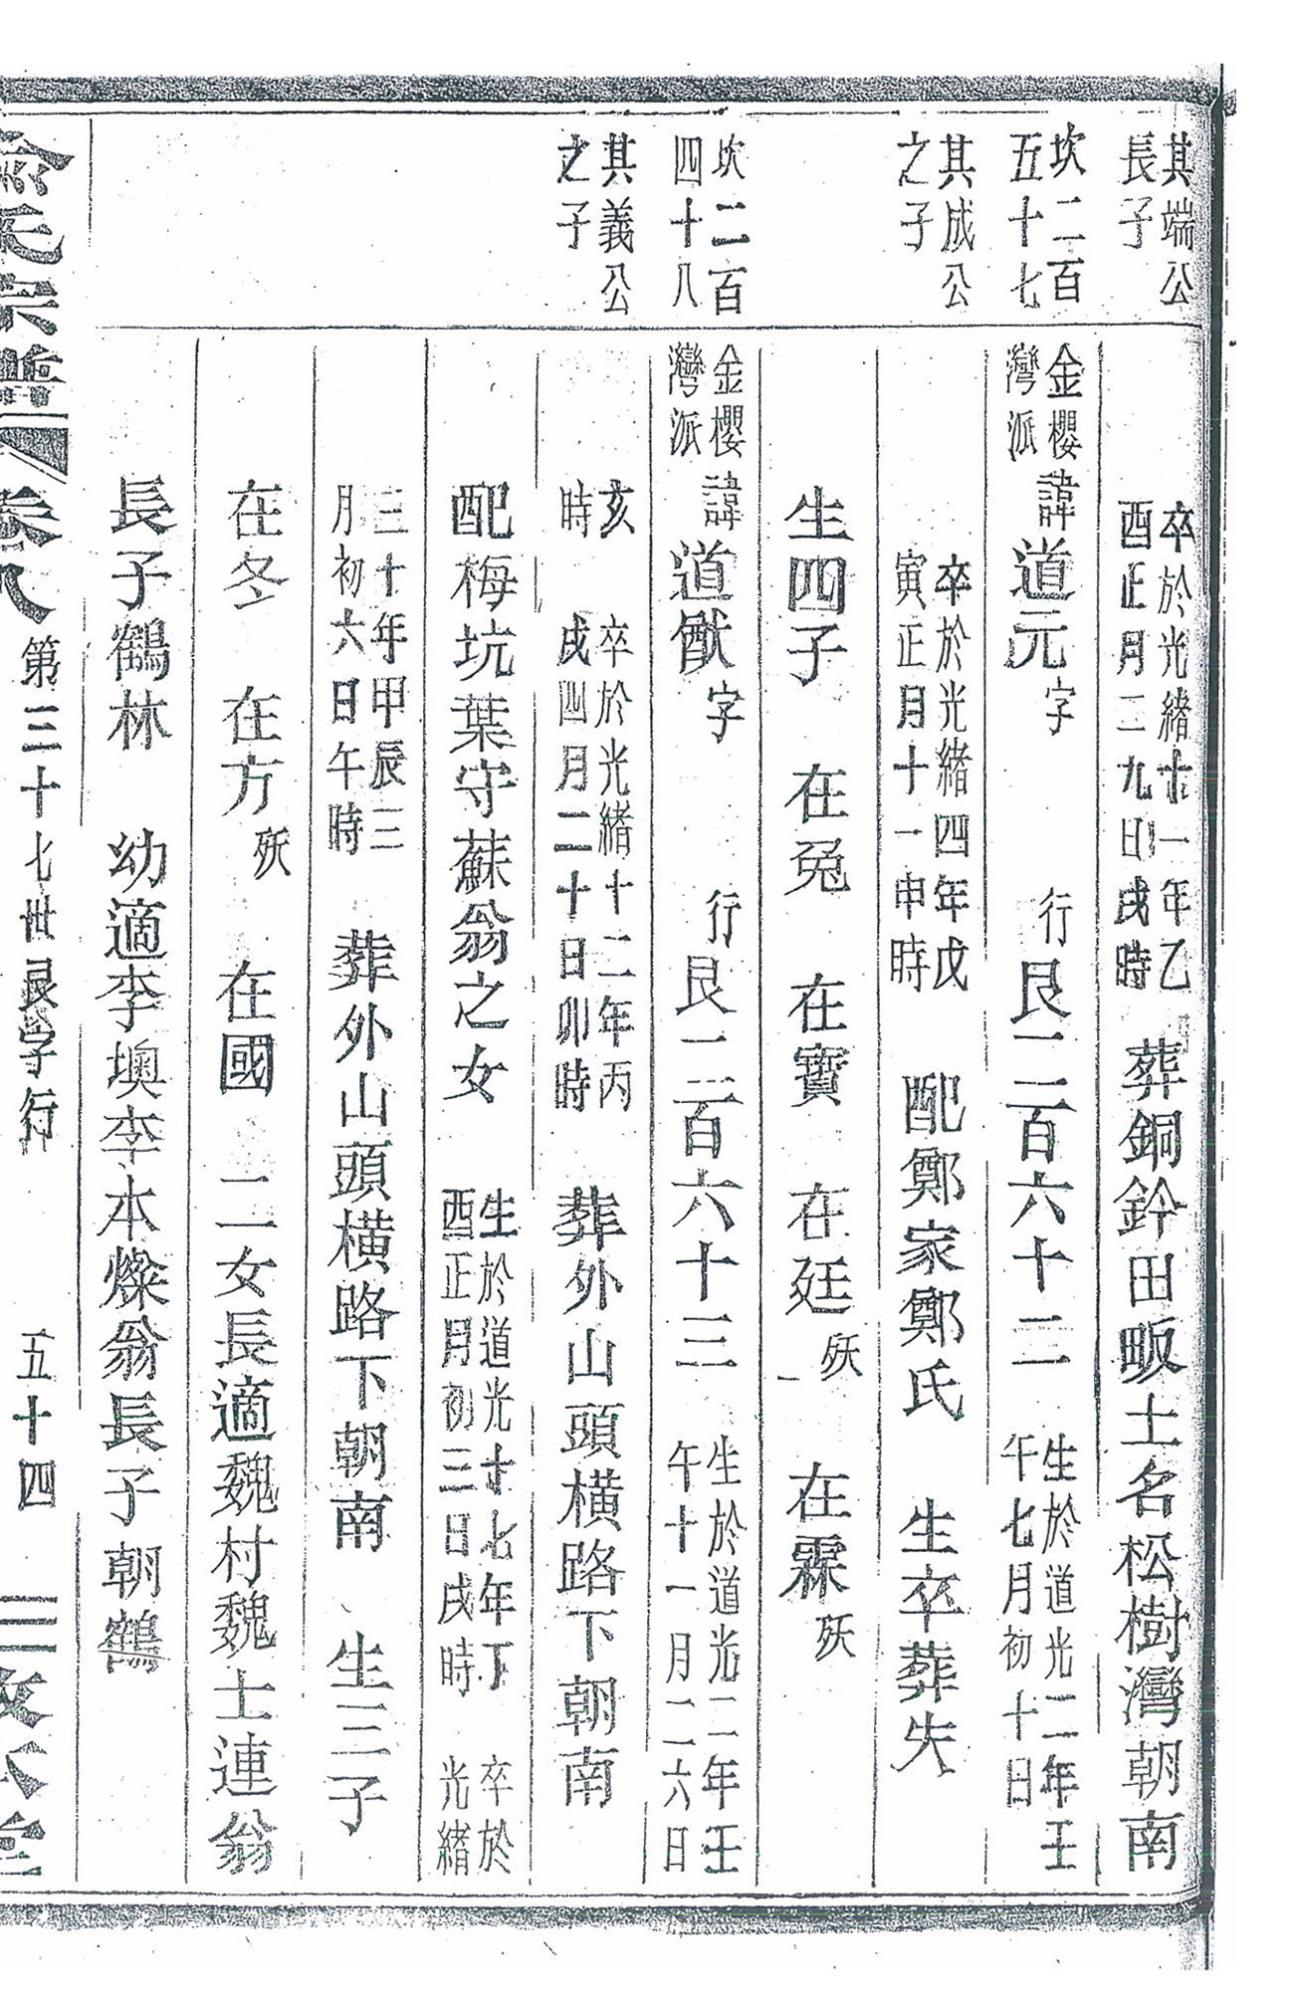 其端公
長子
卒於光緒十一年乙
酉正月二九日戌時
葬銅鈴田畈土名松樹灣朝南
坎二百
五十七
金櫻
灣派
諱道元字 行艮一二百六十二
生於道光二年壬
午七月初十日
其成公
之子
卒於光緒四年戊
寅正月十一申時
配鄭家鄭氏 生卒葬失
生四子 在兔 在寶 在廷殀 在霖殀
坎二百
四十八
金櫻
灣派
諱道猷字 行艮一二百六十三
生於道光二年壬
午十一月二六日
其義公
之子
亥
時
卒於光緒十二年丙
戌四月二十日卯時
葬外山頭橫路下朝南
配梅坑葉守蘇翁之女
生於道光十七年丁
酉正月初三日戌時
卒於
光緒
三十年甲辰三
月初六日午時
葬外山頭橫路下朝南 生三子
在冬 在方殀 在國 二女長適魏村魏士連翁
長子鶴林 幼適李墺李本燦翁長子朝鶴
俞氏宗譜 卷八 第三十七世艮字行 五十四 敦本堂